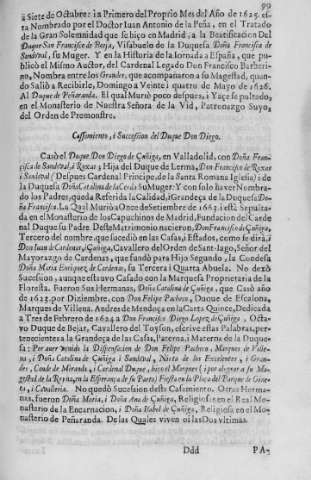 99
à Siete de Octubre: i à Primero del Proprio Mes del Año de 1625. es-
ta Nombrado por el Doctor Iuan Antonio de la Peña, en el Tratado
de la Gran Solemnidad que se hiço en Madrid, a la Beatificacion Del
Duque San Francisco de Borja, Visabuelo de la Duquesa Doña Francisca de
Sandoval, su Muger. Y en la Historia de la Iornada a España, que pu-
blicò el Mismo Auctor, del Cardenal Legado Don Francisco Barberi-
no, Nombra entre los Grandes, que acompañaron a su Magestad, quan-
do Saliò a Recibirle, Domingo a Veinte i quatro de Mayo de 1626.
Al Duque de Peñaranda. El qual Muriò poco despues, i Yaçe sepultado,
en el Monasterio de Nuestra Señora de la Vid, Patronazgo Suyo,
del Orden de Premonstre.
Casamiento, i Succession del Duque Don Diego.
Casò el Duque Don Diego de Çuñiga, en Valladolid, con Doña Fran-
cisca de Sandoval, i Roxas; Hija del Duque de Lerma, Don Francisco de Roxas
i Sandoval (Despues Cardenal Principe, de la Santa Romana Iglesia) i de
la Duquesa Doña Catalina de la Cerda su Muger: Y con solo haver Nombra-
do los Padres, queda Referida la Calidad, i Grandeça de la Duquesa Do-
ña Francisca. La Qual Muriò a Once de Setiembre de 1663. i està Sepulta-
da en el Monasterio de los Capuchinos de Madrid, Fundacion del Carde-
nal Duque su Padre. Deste Matrimonio nacieron, Don Francisco de Çuñiga,
Tercero del nombre, que sucediò en las Casas, i Estados, como se dirà, i
Don Iuan de Cardenas, i Çuñiga, Cavallero del Orden de Sant-Iago, Señor del
Mayorazgo de Cardenas, que fundò para Hijo Segundo, la Condesa
Doña Maria Enriquez, de Cardenas, su Tercera i Quarta Abuela. No dexò
Sucession, aunque estuvo Casado con la Marquesa Proprietaria de la
Floresta. Fueron Sus Hermanas, Doña Catalina de Çuñiga, que Casò año
de 1623. por Diziembre, con Don Felipe Pacheco, Duque de Escalona,
Marques de Villena. Andres de Mendoça en la Carta Quince, Dedicada
a Tres de Febrero de 1624. a Don Francisco Diego Lopez, de Çuñiga, Octa-
vo Duque de Bejar, Cavallero del Toyson, escrive estas Palabras, per-
tenecientes a la Grandeça de las Casas, Paterna, i Materna de la Duque-
sa: Por aver venido la Dispensacion de Don Felipe Pacheco, Marques de Ville-
na, i Doña Catalina de Çuñiga i Sandoval, Nieta de los Excelentes, i Gran-
des, Conde de Miranda, i Cardenal Duque, hiço el Marques (i por alegrar a su Ma-
gestad de la Reyna, en la Esperança de su Parto) Fiesta en la Plaça del Parque de Gine-
ta, i Cavalleria. No quedò Sucession deste Casamiento. Otras Herma-
nas, fueron Doña Maria, i Doña Ana de Çuñiga, Religiosas en el Real Mo-
nasterio de la Encarnacion, i Doña Isabel de Çuñiga, Religiosa en el Mo-
nasterio de Peñaranda. De las Quales viven oi las Dos vltimas.
Ddd PA-